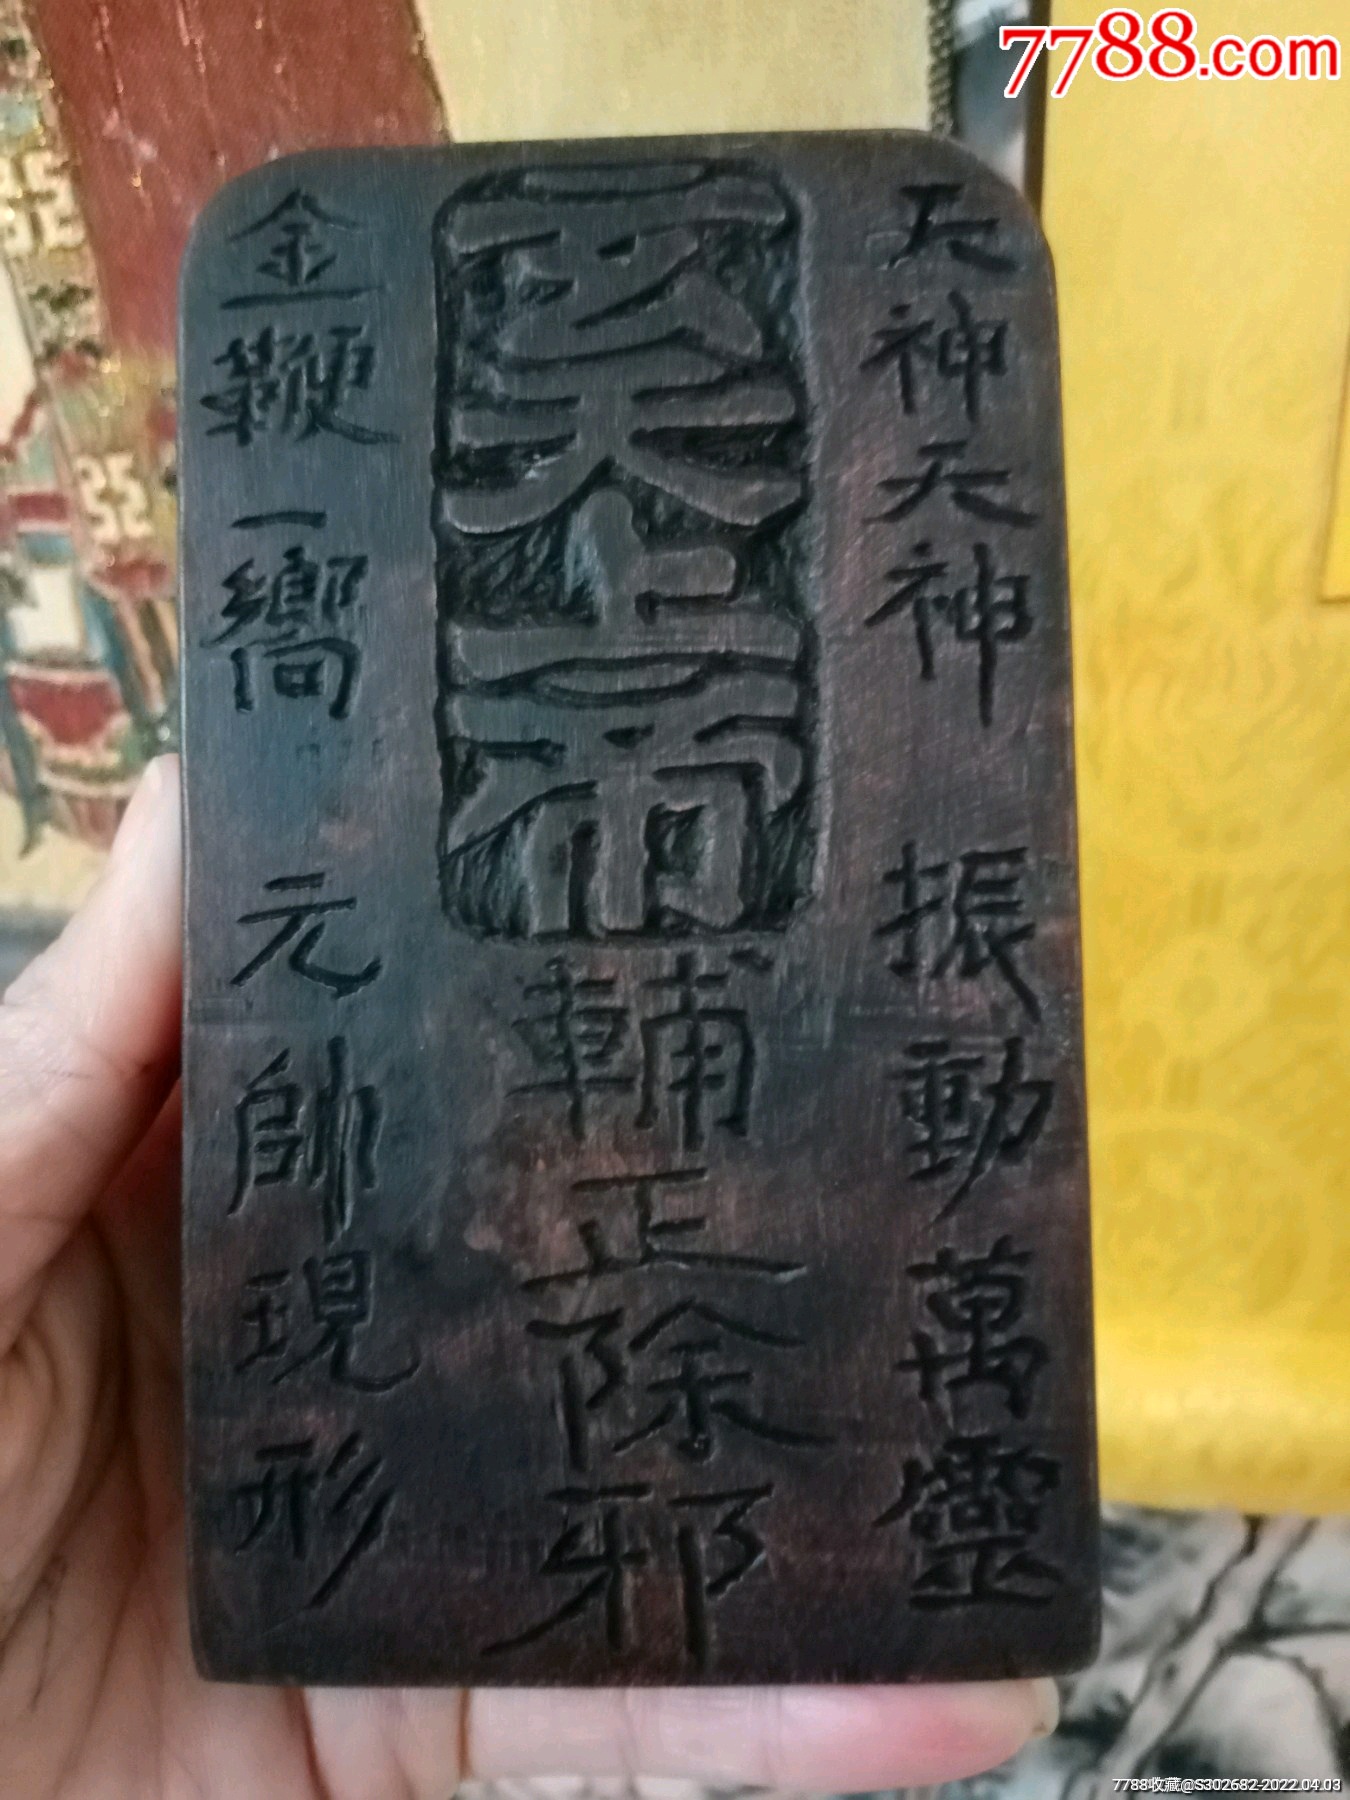 7788.com
天神天神 振動萬靈
天上帝輔正除邪
金鞭一嚮 元帥現形
7788收藏@S302682-2022.04.03